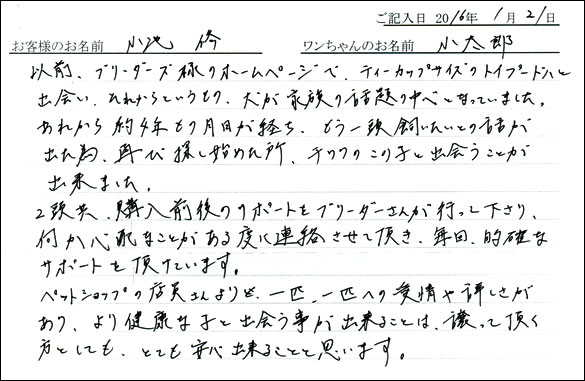 ご記入日 2016年 1月 21日
お客様のお名前 小池 修 ワンちゃんのお名前 小太郎
以前、ブリーダーズ様のホームページで、ティーカップサイズのトイプードルと
出会い、それからというもの、犬が家族の話題の中心となっていました。
あれから約4年もの月日が経ち、もう一頭飼いたいとの話が
出た為、再び探し始めた所、チワワのこの子と出会うことが
出来ました。
2頭共、購入前後のサポートをブリーダーさんが行って下さり、
何か心配なことがある度に連絡させて頂き、毎回、的確な
サポートを頂けています。
ペットショップの店員さんよりも、一匹、一匹への愛情や詳しさが
あり、より健康な子と出会う事が出来ることは、譲って頂く
方としても、とても安心出来ることと思います。